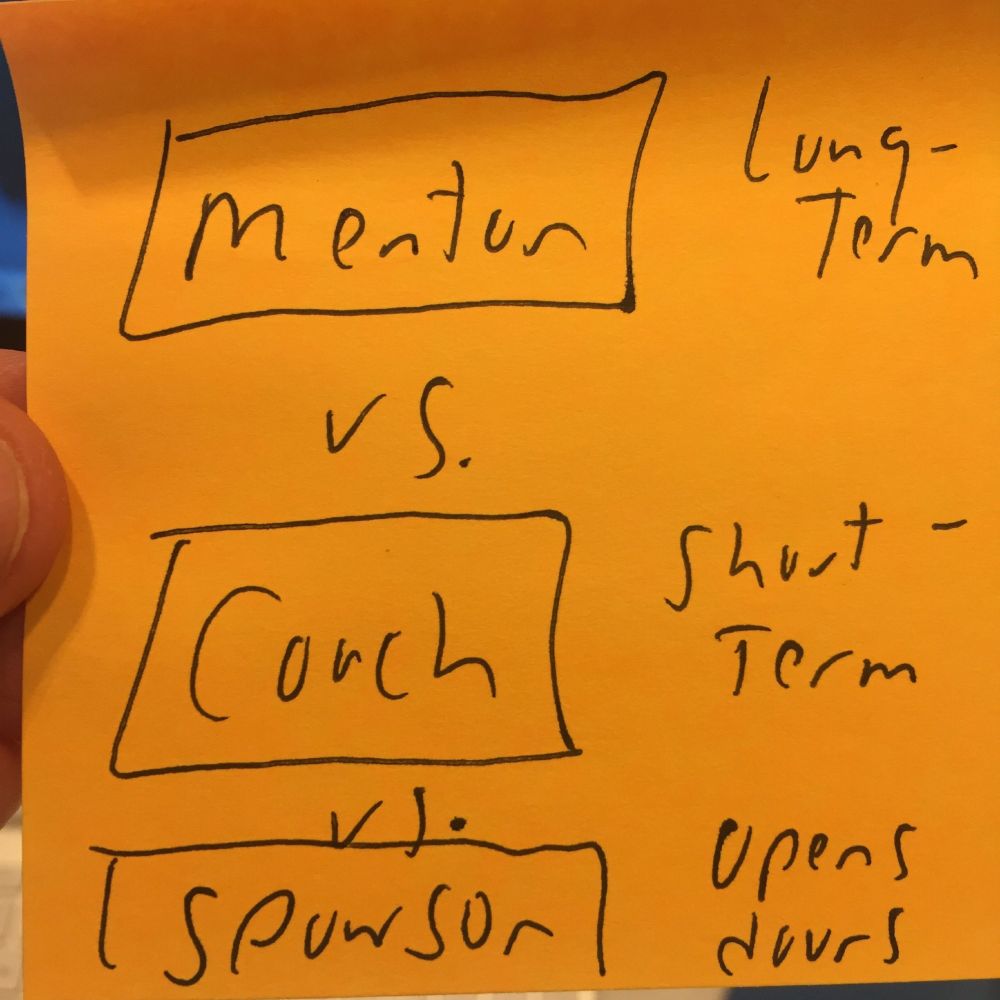 Mentor
Long-
Term
vs.
Coach
short-
Term
vs.
Sponsor
opens
doors